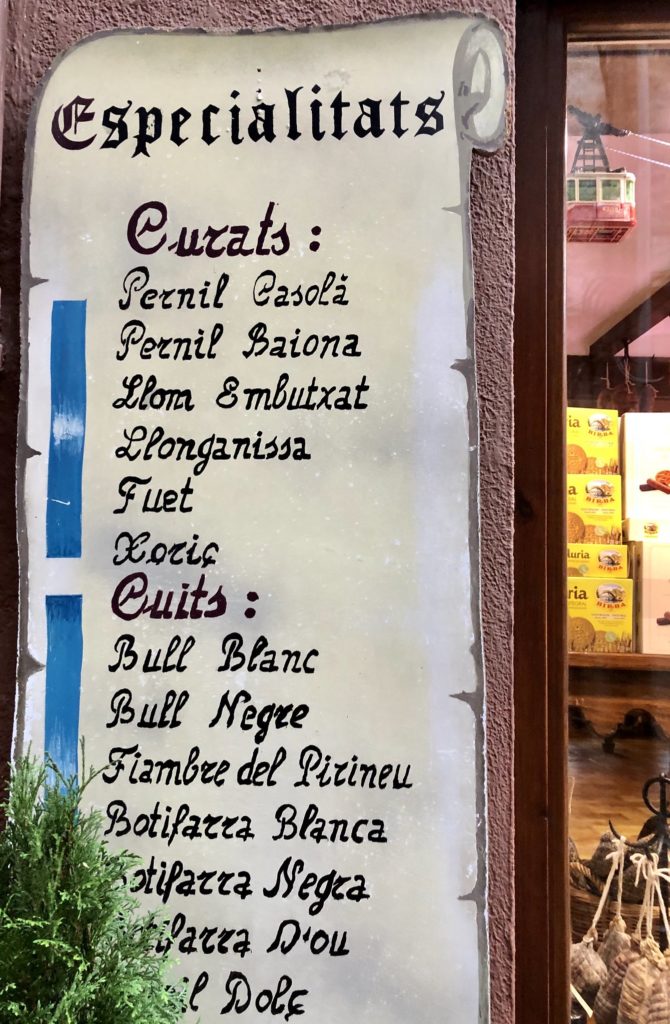 Especialitats
Curats :
Pernil Casolă
Pernil Baiona
Llom Embutxat
Llonganissa
Fuet
Xoriç
Cuits :
Bull Blanc
Bull Negre
Fiambre del Pirineu
Botifarra Blanca
otifarra Negra
tifarra D'ou
il Dolç
ria
BIRBA
BIRBA
luria
BIRBA
ria
BIRBA